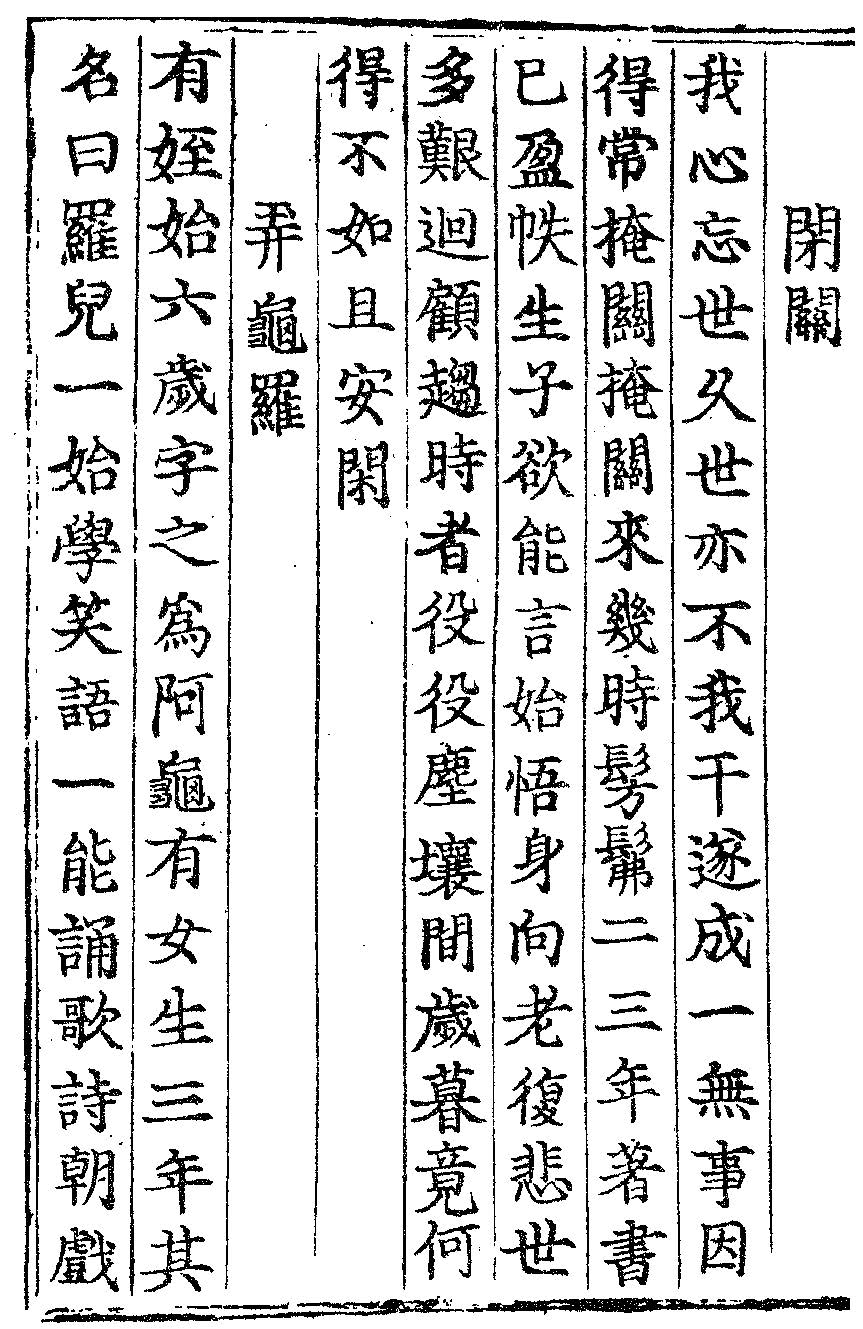 閉關
我心忘世久世亦不我干遂成一無事因
得常掩關掩關來幾時髣髴二三年著書
已盈帙生子欲能言始悟身向老復悲世
多艱迴顧趨時者役役塵壤間歲暮竟何
得不如且安閑
弄龜羅
有姪始六歲字之為阿龜有女生三年其
名曰羅兒一始學笑語一能誦歌詩朝戲